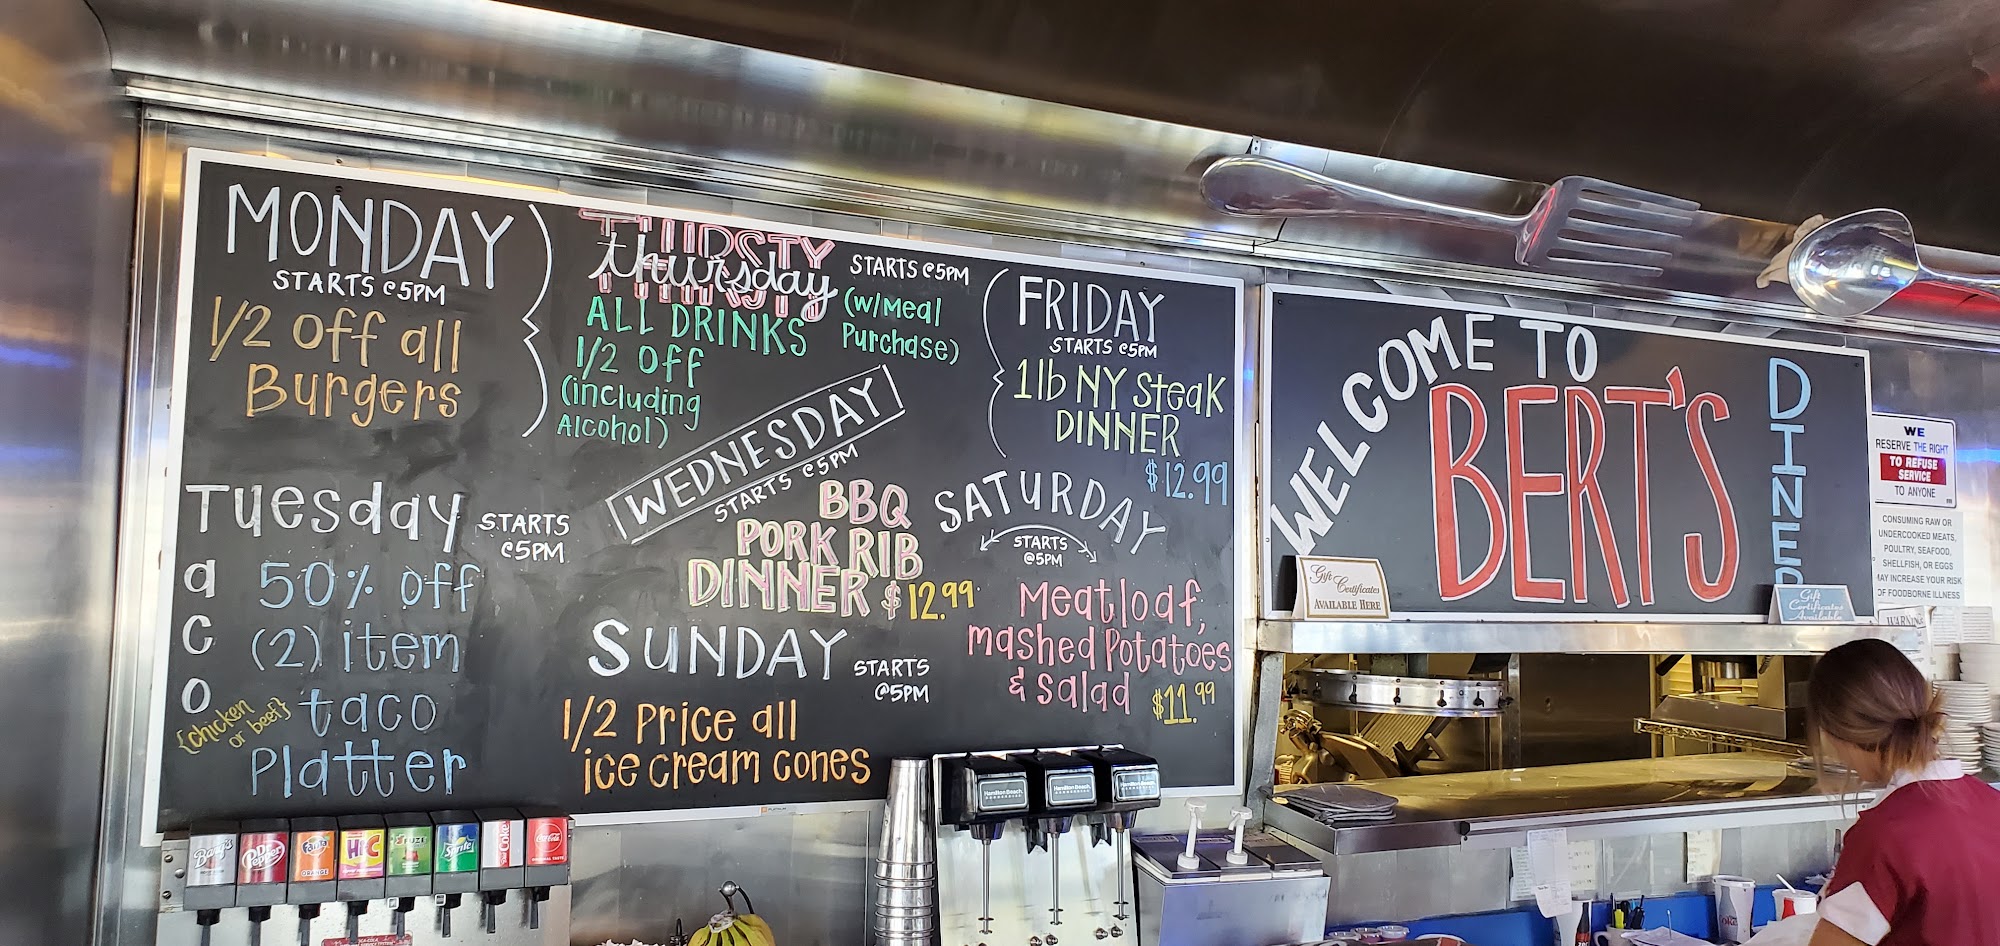 MONDAY
STARTS @5PM
1/2 off all
Burgers
THIRSTY
thursday
THIRSTY
STARTS @5PM
ALL DRINKS
1/2 off
(including
Alcohol)
(w/Meal
Purchase)
FRIDAY
STARTS @5PM
1lb NY Steak
DINNER
$12.99
Tuesday
STARTS
@5PM
aco
50% off
(2) item
taco
Platter
{chicken
or beef}
WEDNESDAY
STARTS @5PM
BBQ
PORK RIB
DINNER $12.99
SATURDAY
STARTS
@5PM
Meatloaf,
mashed Potatoes
& salad
$11.99
SUNDAY
STARTS
@5PM
1/2 Price all
ice cream cones
WELCOME TO
BERT'S
DINER
Gift
Certificates
AVAILABLE HERE
Gift
Certificates
Available
WE
RESERVE THE RIGHT
TO REFUSE
SERVICE
TO ANYONE
CONSUMING RAW OR
UNDERCOOKED MEATS,
POULTRY, SEAFOOD,
SHELLFISH, OR EGGS
MAY INCREASE YOUR RISK
OF FOODBORNE ILLNESS
WARNING
Barq's
Dr Pepper
Fanta
ORANGE
Hi-C
FUZE
Sprite
Coke
Coca-Cola
Hamilton Beach
Hamilton Beach
Hamilton Beach